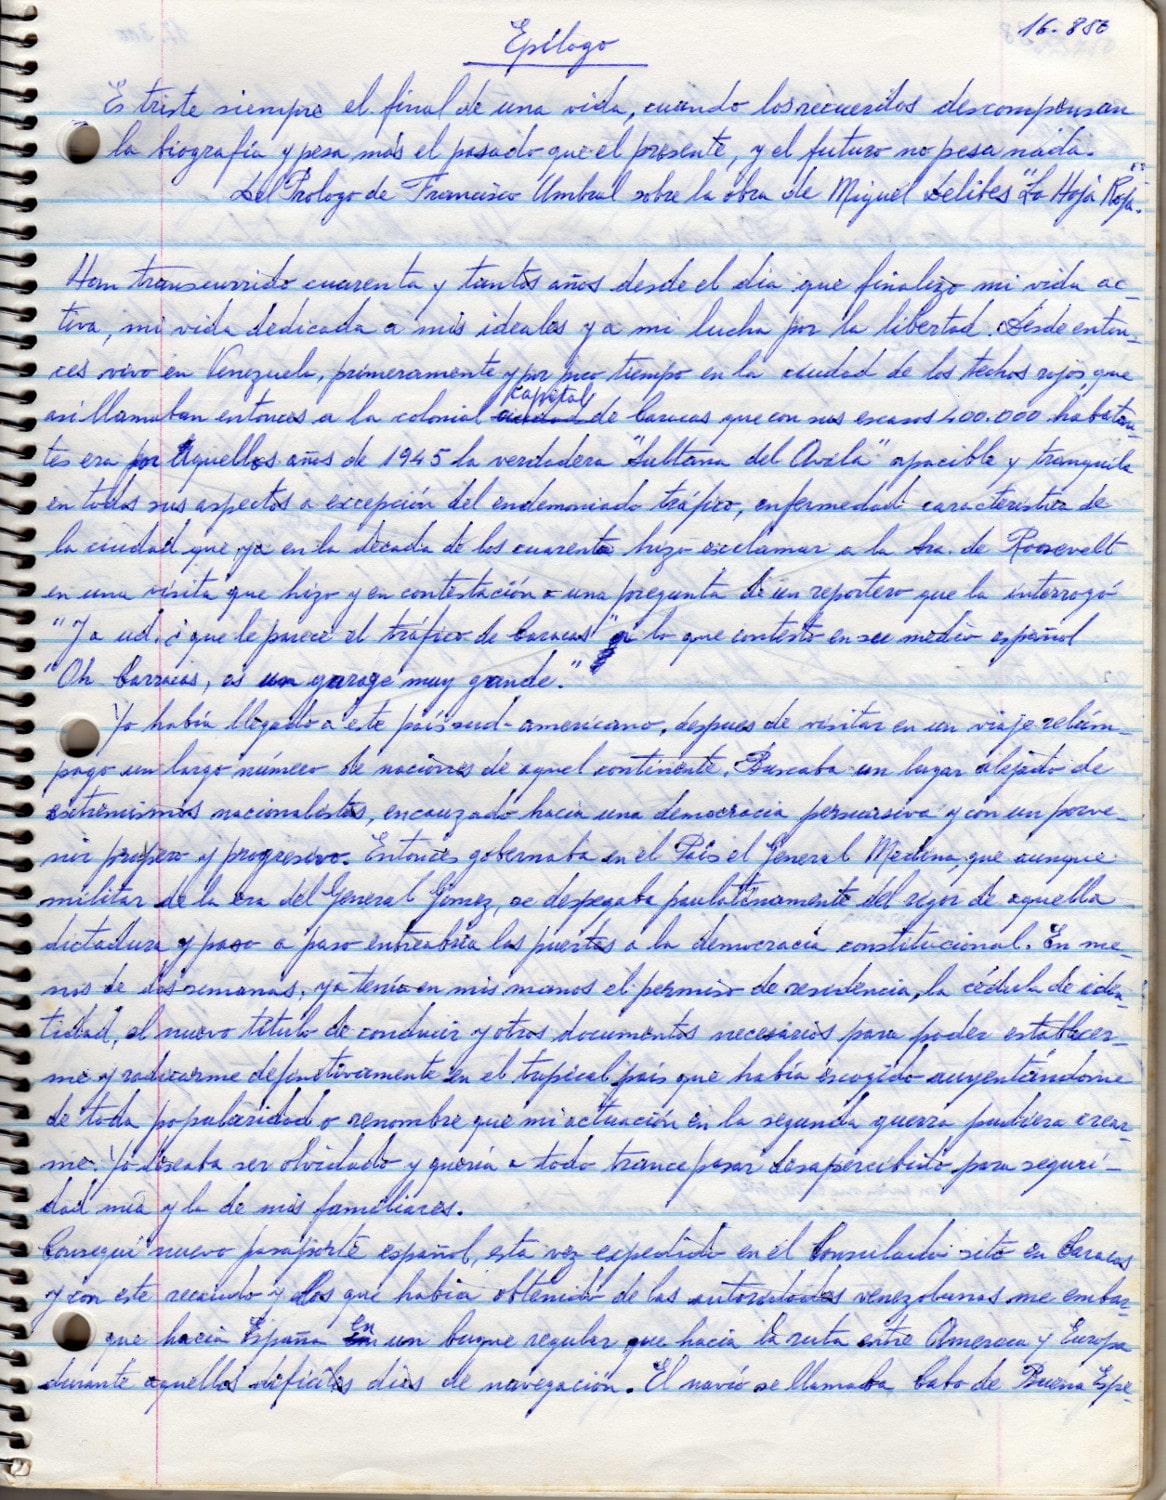 16.850
Epílogo
Es triste siempre el final de una vida, cuando los recuerdos descompensan
la biografía y pesa mas el pasado que el presente, y el futuro no pesa nada.
Del Prologo de Francisco Umbral sobre la obra de Miguel Delibes "La Hoja Roja".
Han transcurrido cuarenta y tantos años desde el dia que finalizo mi vida ac-
tiva, mi vida dedicada a mis ideales y a mi lucha por la libertad. Desde enton-
ces vivo en Venezuela, primeramente y por poco tiempo en la ciudad de los techos rojos, que
asi llamaban entonces a la colonial capital de Caracas que con sus escasos 400.000 habitan-
tes era por aquellos años de 1945 la verdadera "Sultana del Avila" apacible y tranquila
en todos sus aspectos a excepción del endemoniado tráfico, enfermedad caracteristica de
la ciudad que ya en la década de los cuarenta hizo exclamar a la Sra. de Roosevelt
en una visita que hizo y en contestación a una pregunta de un reportero que la interrogó
"Y a ud. ¿que le parece el tráfico de Caracas" a lo que contesto en su medio español
"Oh Carracas, es un garage muy grande."
Yo había llegado a este país sud-americano, despues de visitar en un viaje relám-
pago un largo número de naciones de aquel continente. Buscaba un lugar alejado de
extremismos nacionalistas, encauzado hacia una democracia persuasiva y con un porve-
nir prospero y progresivo. Entonces gobernaba en el País el General Medina, que aunque
militar de la era del General Gómez, se despegaba paulatinamente del rigor de aquella
dictadura y paso a paso entreabria las puertas a la democracia constitucional. En me-
nos de dos semanas, ya tenía en mis manos el permiso de residencia, la cédula de iden-
tidad, el nuevo título de conducir y otros documentos necesarios para poder establecer-
me y radicarme definitivamente en el tropical país que había escogido auyentándome
de toda popularidad o renombre que mi actuación en la segunda guerra pudiera crear-
me. Yo deseaba ser olvidado y quería a todo trance pasar desapercibido para seguri-
dad mia y la de mis familiares.
Conseguí nuevo pasaporte español, esta vez expedido en el Consulado sito en Caracas
y con este recaudo y los que había obtenido de las autoridades venezolanas me embar-
que hacia España en un buque regular que hacia la ruta entre America y Europa
durante aquellos dificiles dias de navegación. El navío se llamaba Cabo de Buena Espe-